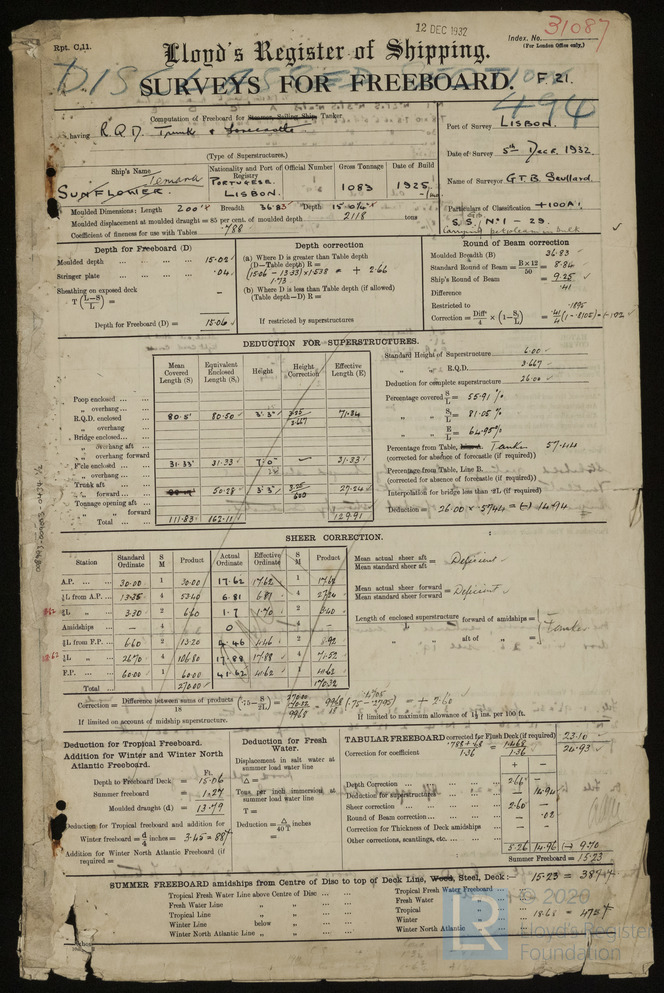 12 DEC 1932
Rpt. C.11.
Index. No. 31087
(For London Office only.)
Lloyd's Register of Shipping.
SURVEYS FOR FREEBOARD. F 21.
494
Computation of Freeboard for Steamer, Sailing Ship, Tanker
having R.Q.D. Trunk & Forecastle
(Type of Superstructures.)
Port of Survey LISBON.
Date of Survey 5th Dece. 1932.
Name of Surveyor
Particulars of Classification +100A1
S.S. No 1 - 29.
Carrying petroleum in bulk
Ship's Name
SUNFLOWER.
Nationality and Port of Registry
PORTUGESE.
LISBON.
Official Number
Gross Tonnage
1083
Date of Build
1925
Moulded Dimensions: Length 200' Breadth 36.83 Depth
Moulded displacement at moulded draught = 85 per cent. of moulded depth 2118 tons
Coefficient of fineness for use with Tables .788
Depth for Freeboard (D)
Moulded depth 15.02
Stringer plate .04
Sheathing on exposed deck —
T (L-S/L) =
Depth for Freeboard (D) = 15.06
Depth correction
(a) Where D is greater than Table depth
(D—Table depth) R =
(15.06 - 13.33) × 1.538 = + 2.66
1.73
(b) Where D is less than Table depth (if allowed)
(Table depth—D) R =
If restricted by superstructures
Round of Beam correction
Moulded Breadth (B) 36.83
Standard Round of Beam = B×12/50 = 8.84
Ship's Round of Beam = 9.25
Difference .41
Restricted to
Correction = Diff/4 × (1-S/L) = .41/4 (1-.8105) = (-).02
.1895
DEDUCTION FOR SUPERSTRUCTURES.
Mean Covered Length (S)
Equivalent Enclosed Length (S₁)
Height
Height Correction
Effective Length (E)
Poop enclosed
„ overhang
R.Q.D. enclosed 80.5' 80.50 3'.3" 3.25/3.667 71.34
„ overhang
Bridge enclosed
„ overhang aft
„ overhang forward
F'cle enclosed 31.33' 31.33 7'.0" 31.33
„ overhang
Trunk aft
„ forward 50.28 3'.3" 3.25/6.00 27.24
Tonnage opening aft
„ „ forward
Total 111.83 162.11 129.91
Standard Height of Superstructure 6.00
„ „ R.Q.D. 3.667
Deduction for complete superstructure 26.00
Percentage covered S/L = 55.91 %
„ „ S₁/L = 81.05 %
„ „ E/L = 64.95 %
Percentage from Table, Line A. Tanker 57.44
(corrected for absence of forecastle (if required))
Percentage from Table, Line B.
(corrected for absence of forecastle (if required))
Interpolation for bridge less than ·2L (if required)
Deduction = 26.00 × .5744 = (-) 14.94
SHEER CORRECTION.
Station
Standard Ordinate
S M
Product
Actual Ordinate
Effective Ordinate
S M
Product
A.P. 30.00 1 30.00 17.62 17.62 1 17.62
⅙L from A.P. 13.35 4 53.40 6.81 6.81 4 27.24
⅓L „ 3.30 2 6.60 1.7 1.70 2 3.40
Amidships — 4 — 0 — 4 —
⅓L from F.P. 6.60 2 13.20 4.46 4.46 2 8.92
⅙L „ 26.70 4 106.80 17.88 17.88 4 71.52
F.P. 60.00 1 60.00 41.62 41.62 1 41.62
Total 270.00 170.32
Mean actual sheer aft
Mean standard sheer aft = Deficient
Mean actual sheer forward
Mean standard sheer forward = Deficient
Length of enclosed superstructure forward of amidships =
L
„ „ aft of „ =
Tanker
Correction = Difference between sums of products/18 (·75 - S/2L) = 270.00 - 170.32 = 99.68/18 (.75 - .2795) = + 2.60
.4705
99.68
If limited on account of midship superstructure.
If limited to maximum allowance of 1½ ins. per 100 ft.
Deduction for Tropical Freeboard.
Addition for Winter and Winter North Atlantic Freeboard.
Ft.
Depth to Freeboard Deck = 15.06
Summer freeboard = 1.27
Moulded draught (d) = 13.79
Deduction for Tropical freeboard and addition for
Winter freeboard = d/4 inches = 3.45 =
Addition for Winter North Atlantic Freeboard (if required) =
Deduction for Fresh Water.
Displacement in salt water at summer load water line
Δ =
Tons per inch immersion at summer load water line
T =
Deduction = Δ/40 T inches
=
TABULAR FREEBOARD corrected for Flush Deck (if required) 23.10
Correction for coefficient .788+.68/1.36 = 1.468/1.36 24.93
+ —
Depth Correction 2.66 —
Deduction for superstructures — 14.94
Sheer correction 2.60 —
Round of Beam correction — .02
Correction for Thickness of Deck amidships — —
Other corrections, scantlings, etc.
5.26 14.96 (-) 9.70
Summer Freeboard = 15.23
SUMMER FREEBOARD amidships from Centre of Disc to top of Deck Line, Wood, Steel, Deck:— 15.23 =
Tropical Fresh Water Line above Centre of Disc
Fresh Water Line „ „
Tropical Line „ „
Winter Line below „
Winter North Atlantic Line „ „
Tropical Fresh Water Freeboard
Fresh Water „
Tropical „
Winter „ 18.68 =
Winter North Atlantic „
LR
© 2020
Lloyd's Register
Foundation